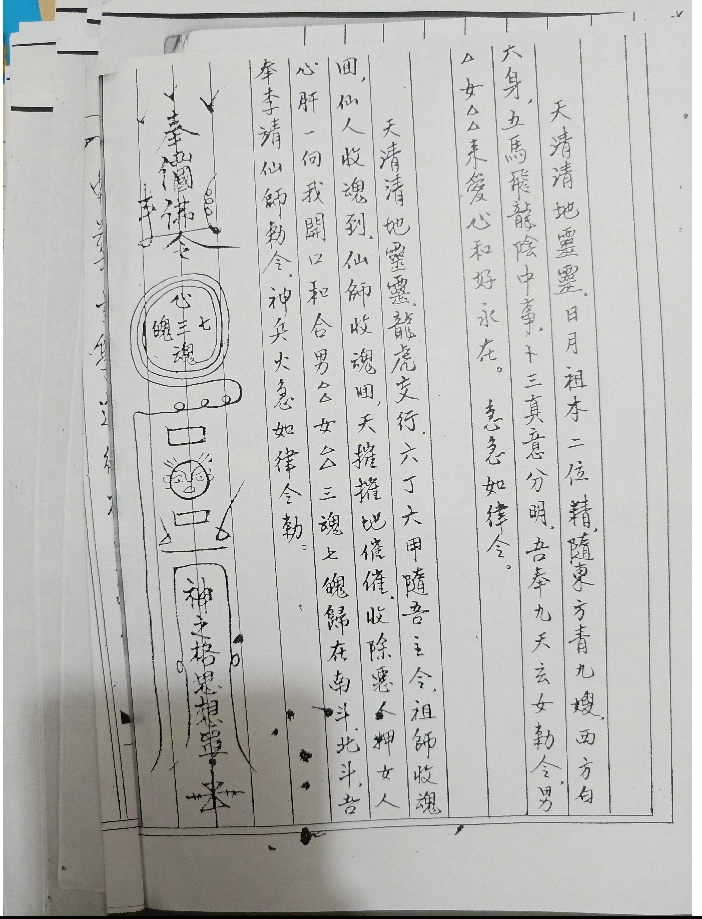 天清清地靈靈，日月祖本二位精，隨東方青九嫂，西方白
六身，五馬飛龍陰中事，卜三真意分明，吾奉九天玄女勅令，男
△女△△来愛心和好永在。急急如律令。
天清清地靈靈，龍虎交行，六丁六甲隨吾主令，祖師收魂
田，仙人收魂到，仙師收魂田，天摧摧地催催，收除惡人押女人
心肝一向我開口和合男△△女△△三魂七魄歸在南斗、北斗，吾
奉李靖仙師勅令，神兵火急如律令勅：
奉
佛令
七
心三魂
魄
神之格思想單